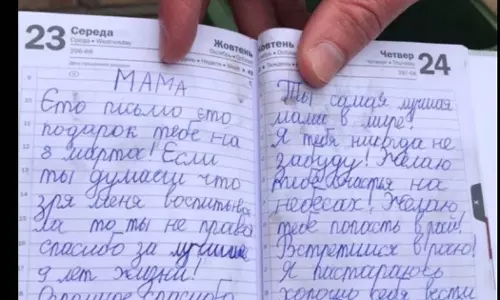 23 Середа
Среда • Wednesday
296-68
Жовтень
Октябрь • October
МАМА
Єто письмо єто
подарок тебе на
8 марта! Если
ты думаеш что
зря меня воспитыва
ла то ты не права
спасибо за лучшие
9 лет жизни!
Огромное спасибо
Жовтень
Октябрь • October
Четвер 24
Четверг • Thursday
297-68
Ты самая лучшая
мама в мире!
Я тебя никогда не
забуду! Желаю
тебе счастья на
небесах! Желаю
тебе попасть в рай!
Встретимся в раю!
Я постараюсь
хорошо себя вести